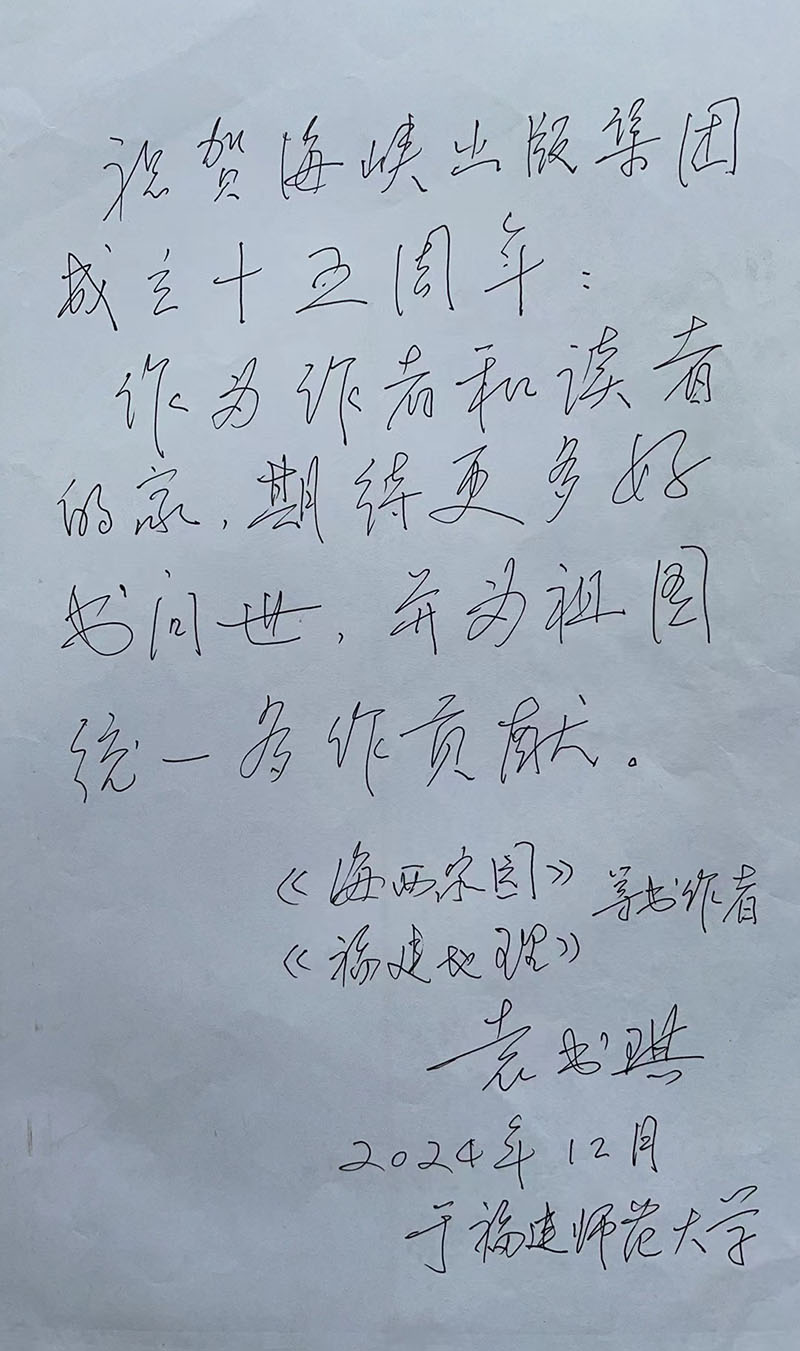 祝贺海峡出版集团
成立十五周年：
作为作者和读者
的家，期待更多好
书问世，并为祖国
统一多作贡献。
《海西家园》等书作者
《福建地理》
袁书琪
2024年12月
于福建师范大学